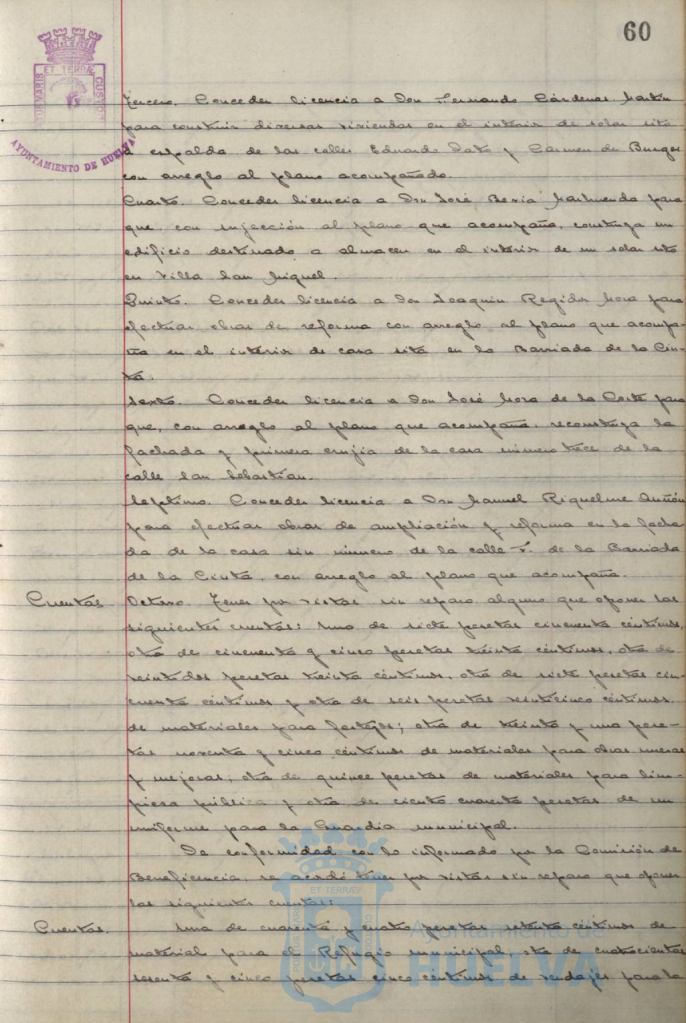 60
PORTUS MARIS ET TERRAE CUSTODIA
AYUNTAMIENTO DE HUELVA
Tercero. Conceder licencia a Don Fernando Cárdenas Martín
para construir diversas viviendas en el interior de solar sito
a espalda de las calles Eduardo Dato y Carmen de Burgos
con arreglo al plano acompañado.
Cuarto. Conceder licencia a Don José para
que, con sujección al plano que acompaña, construya un
edificio destinado a almacen en el interior de un solar sito
en Villa San Miguel.
Quinto. Conceder licencia a Don Joaquin Regidor Mora para
efectuar obras de reforma con arreglo al plano que acompa-
ña en el interior de casa sita en la Barriada de la Cin-
ta.
Sexto. Conceder licencia a Don José Mora de la Corte para
que, con arreglo al plano que acompaña, reconstruya la
fachada y primera crujia de la casa número trece de la
calle San Sebastián.
Septimo. Conceder licencia a Don Manuel Riquelme
para efectuar obras de ampliación y reforma en la facha-
da de la casa sin número de la calle F. de la Barriada
de la Cinta, con arreglo al plano que acompaña.
Cuentas. Octavo. Tener por vistas sin reparo alguno que oponer las
siguientes cuentas: una de siete pesetas cincuenta céntimos,
otra de cincuenta y cinco pesetas treinta céntimos, otra de
veintidos pesetas treinta céntimos, otra de siete pesetas cin-
cuenta céntimos y otra de seis pesetas veinticinco céntimos,
de materiales para festejos; otra de treinta y una pese-
tas noventa y cinco céntimos de materiales para obras nuevas
y mejoras; otra de quince pesetas de materiales para lim-
pieza pública y otra de ciento cuarenta pesetas de un
uniforme para la Guardia municipal.
De conformidad con lo informado por la Comisión de
Beneficencia, se acordó tener por vistas sin reparo que oponer
las siguientes cuentas:
Cuentas. Una de cuarenta y cuatro pesetas setenta céntimos de
material para el Refugio municipal, otra de cuatrocientas
sesenta y cinco pesetas cinco céntimos de vendajes para la
Ayuntamiento de
HUELVA